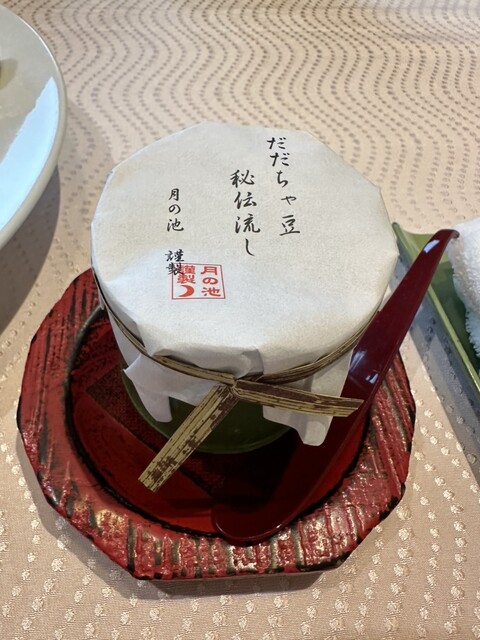 だだちゃ豆
秘伝流し
月の池
謹製
月の池
謹製